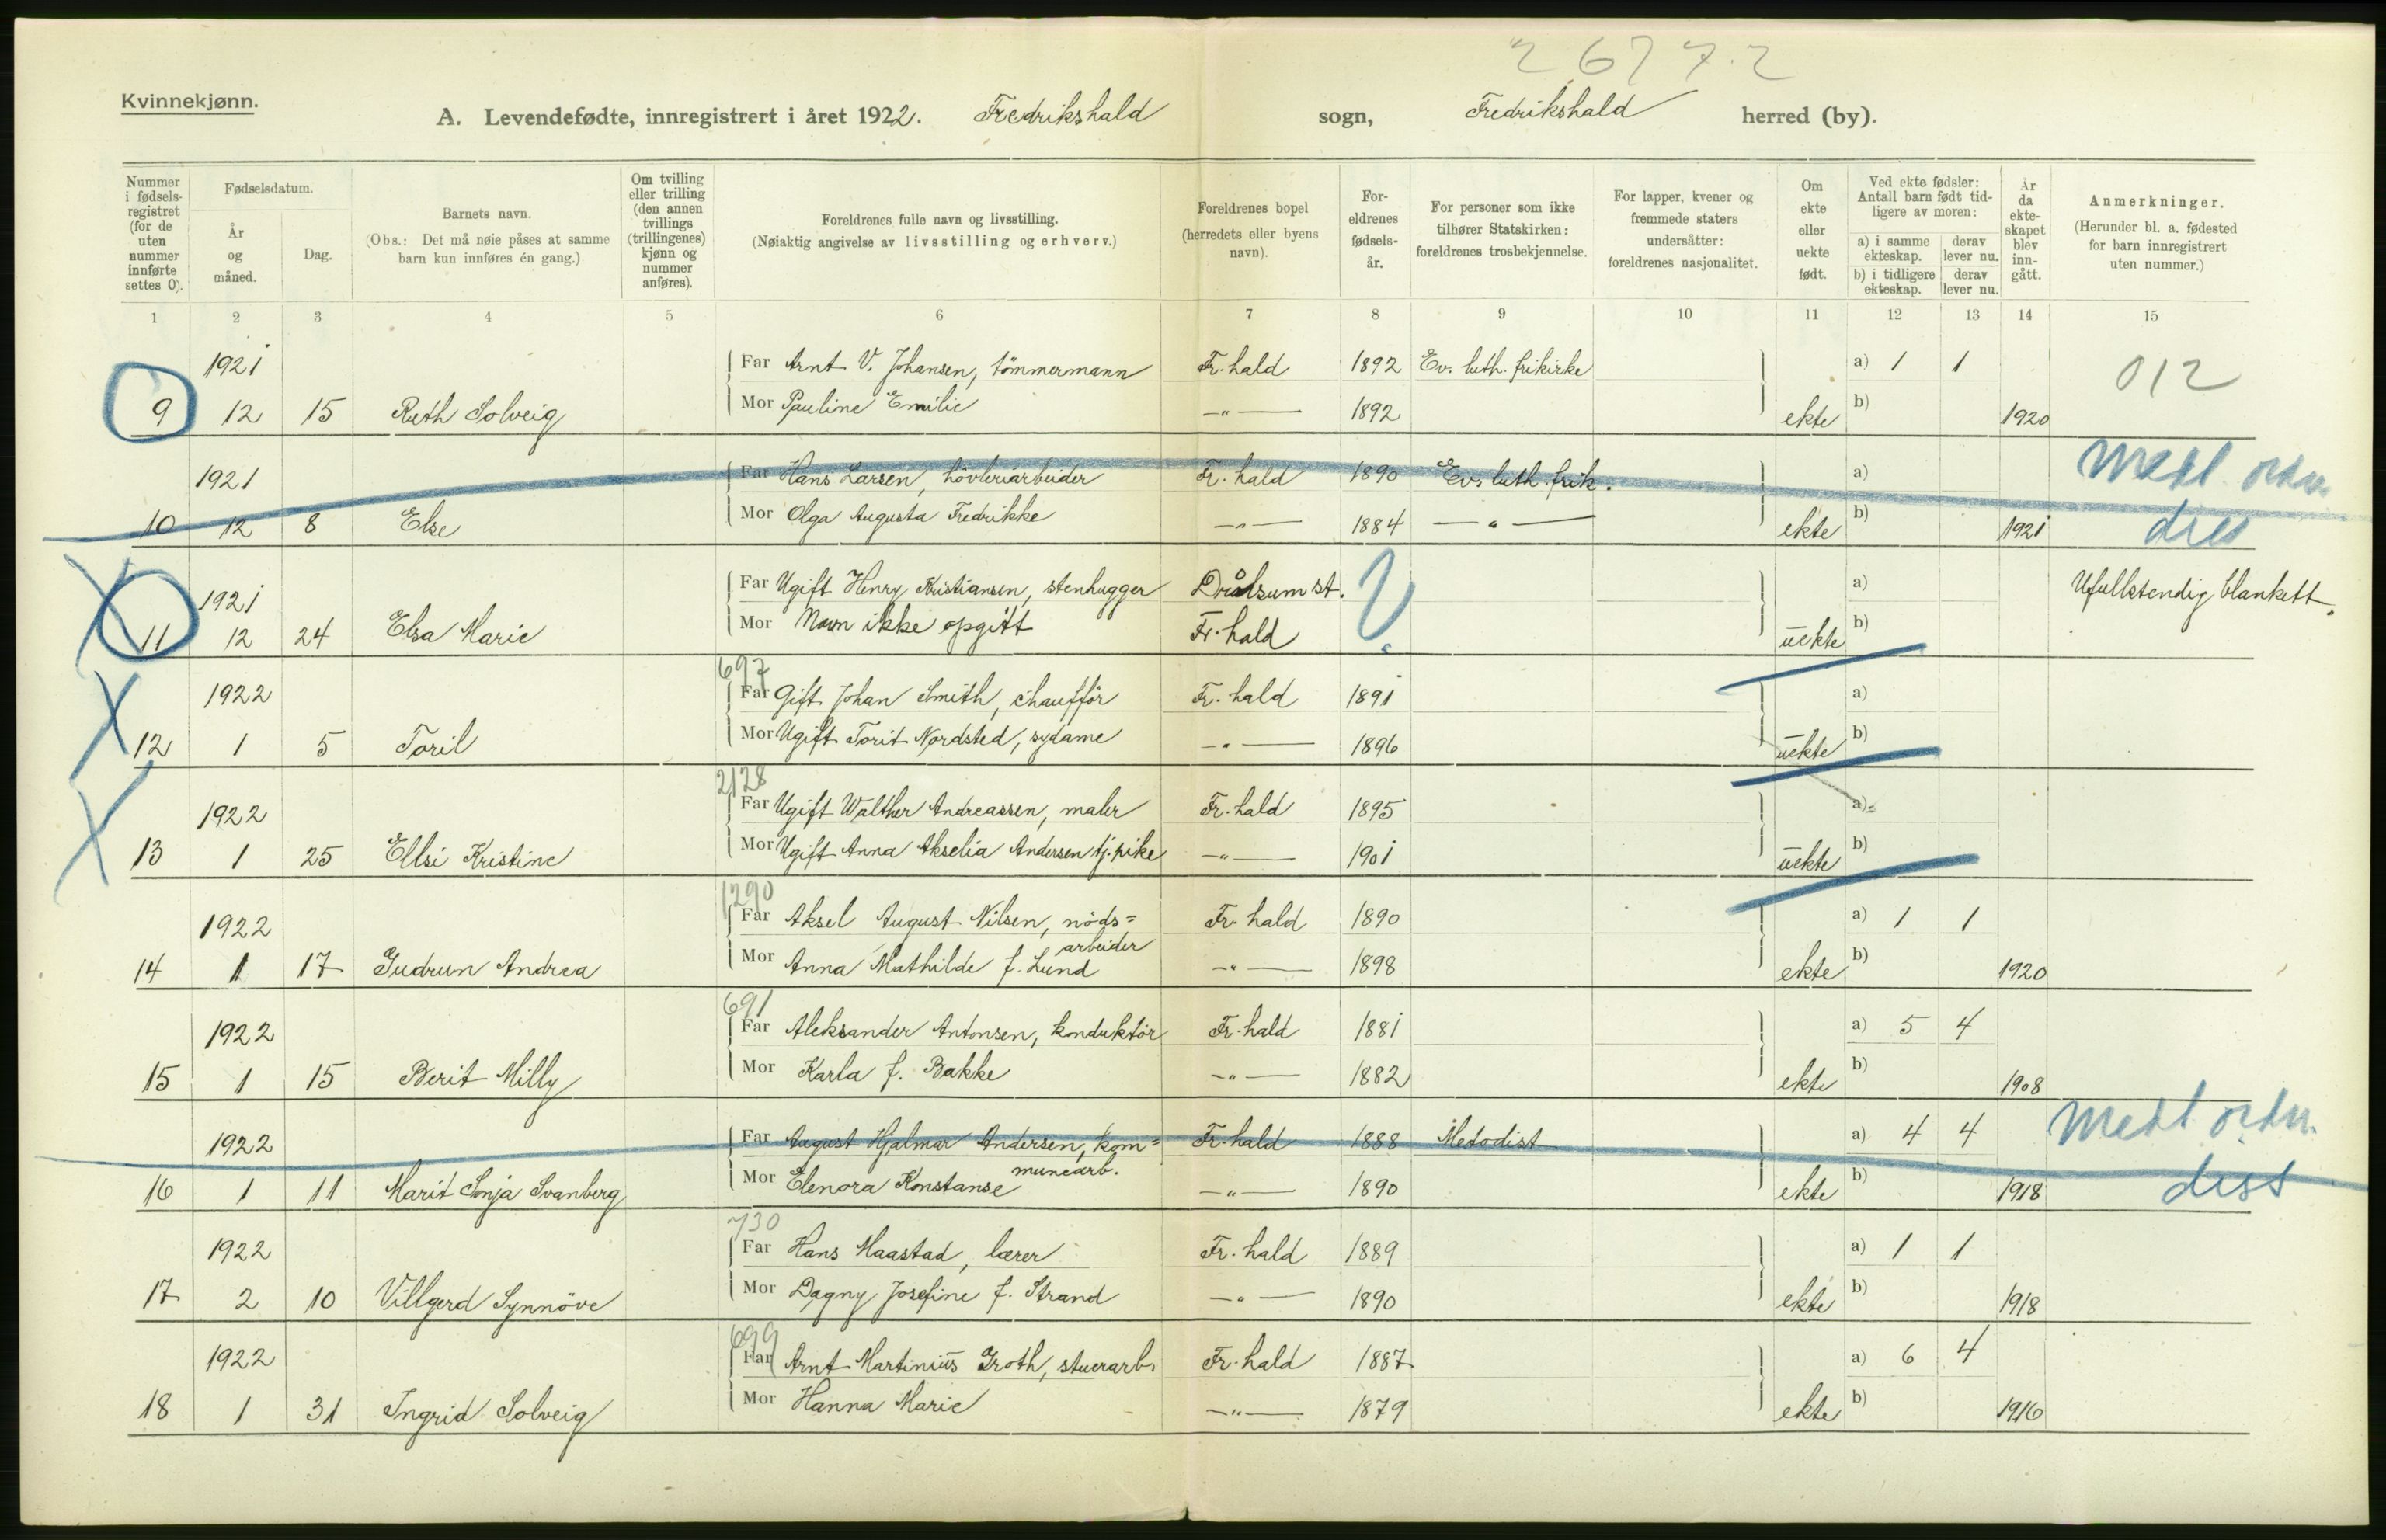 2677.2
Kvinnekjønn.
A. Levendefødte, innregistrert i året 1922. Fredrikshald sogn, Fredrikshald herred (by).
Nummer i fødsels-registret (for de uten nummer innførte settes 0).
Fødselsdatum.
År og måned.
Dag.
Barnets navn.
(Obs.: Det må nøie påses at samme barn kun innføres én gang.)
Om tvilling eller trilling (den annen tvillings (trillingenes) kjønn og nummer anføres).
Foreldrenes fulle navn og livsstilling.
(Nøiaktig angivelse av livsstilling og erhverv.)
Foreldrenes bopel (herredets eller byens navn).
For-eldrenes fødsels-år.
For personer som ikke tilhører Statskirken: foreldrenes trosbekjennelse.
For lapper, kvener og fremmede staters undersåtter: foreldrenes nasjonalitet.
Om ekte eller uekte født.
Ved ekte fødsler: Antall barn født tid-ligere av moren:
a) i samme ekteskap.
derav lever nu.
b) i tidligere ekteskap.
derav lever nu.
År da ekte-skapet blev inn-gått.
Anmerkninger.
(Herunder bl. a. fødested for barn innregistrert uten nummer.)
1 2 3 4 5 6 7 8 9 10 11 12 13 14 15
1921 Far Arnt V. Johansen, tömmermann Fr. hald 1892 Ev. luth. frikirke a) 1 1 012
9 12 15 Ruth Solveig Mor Pauline Emilie —"— 1892 ekte b) 1920
1921 Far Hans Larsen, hövleriarbeider Fr. hald 1890 Ev. luth. frik. a)
10 12 8 Else Mor Olga Augusta Fredrikke —"— 1884 —"— ekte b) 1921
1921 Far Ugift Henry Kristiansen, stenhugger st. a) Ufullstendig blankett.
11 12 24 Elsa Marie Mor Navn ikke opgitt Fr. hald ? uekte b)
697
1922 Far Gift Johan Smith, chaufför Fr. hald 1891 a)
12 1 5 Toril Mor Ugift Torit Nordsted, sydame —"— 1896 uekte b)
2128
1922 Far Ugift Walther Andreassen, maler Fr. hald 1895 a)
13 1 25 Ellsi Kristine Mor Ugift Anna Akselia Andersen tj. pike —"— 1901 uekte b)
1290
1922 Far Aksel August Nilsen, nöds= Fr. hald 1890 a) 1 1
arbeider
14 1 17 Gudrun Andrea Mor Anna Mathilde f. Lund —"— 1898 ekte b) 1920
691
1922 Far Aleksander Antonsen, konduktör Fr. hald 1881 a) 5 4
15 1 15 Berit Milly Mor Karla f. Bakke —"— 1882 ekte b) 1908
1922 Far August Hjalmar Andersen, kom= Fr. hald 1888 Metodist a) 4 4
munearb.
16 1 11 Marit Sonja Svanberg Mor Elenora Konstanse —"— 1890 ekte b) 1918
730
1922 Far Hans Maastad, lærer Fr. hald 1889 a) 1 1
17 2 10 Villgerd Synnöve Mor Dagny Josefine f. Strand —"— 1890 ekte b) 1918
699
1922 Far Arnt Martinius Groth, stuerarb. Fr. hald 1887 a) 6 4
18 1 31 Ingrid Solveig Mor Hanna Marie —"— 1879 ekte b) 1916